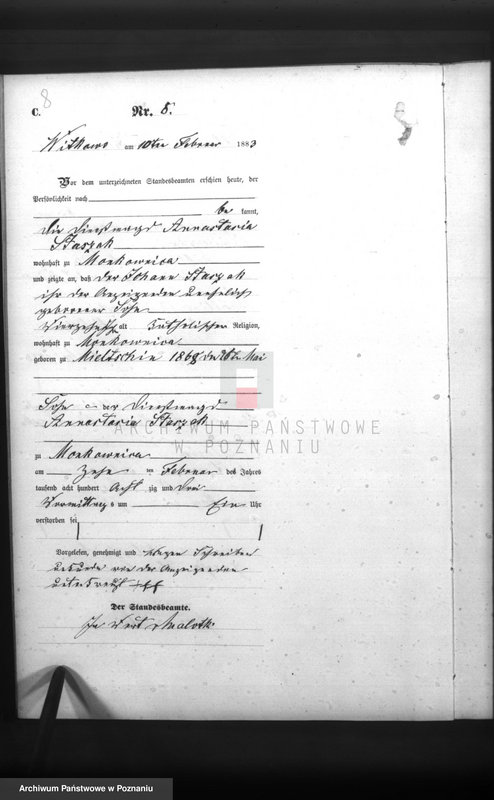 8
C.
Nr. 8.
Witkowo am 10ten Februar 1883
Vor dem unterzeichneten Standesbeamten erschien heute, der
Persönlichkeit nach
be kannt,
die Dienstmagd Annastasia
Staszak
wohnhaft zu Monkownica
und zeigte an, daß der Johann Staszak
ihr der Anzeigenden unehelich
geborener Sohn
Vierzehn J alt Katholischer Religion,
wohnhaft zu Monkownica
geboren zu Mieltschin 1868 den Mai
Sohn der Dienstmagd
Annastasia Staszak
ARCHIWUM PAŃSTWOWE
W POZNANIU
zu Monkownica
am Zehn ten Februar des Jahres
tausend acht hundert Acht zig und drei
Vormittags um Ein Uhr
verstorben sei
Vorgelesen, genehmigt und wegen Schreiben
unkunde von der Anzeigenden
unterkreuzt +++
Der Standesbeamte.
In Vert
Archiwum Państwowe w Poznaniu